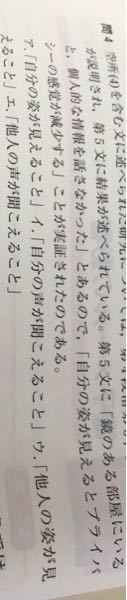 問4 空所(4)を含む文に述べられた研究については、第4段
が説明され、第5文に結果が述べられている。第5文に「鏡のある部屋にいる
と、個人的な情報を話さなかった」とあるので、「自分の姿が見えるとプライバ
シーの感覚が減少する」ことが実証されたのである。
ア.「自分の姿が見えること」イ.「自分の声が聞こえること」ウ.「他人の姿が見
えること」エ.「他人の声が聞こえること」